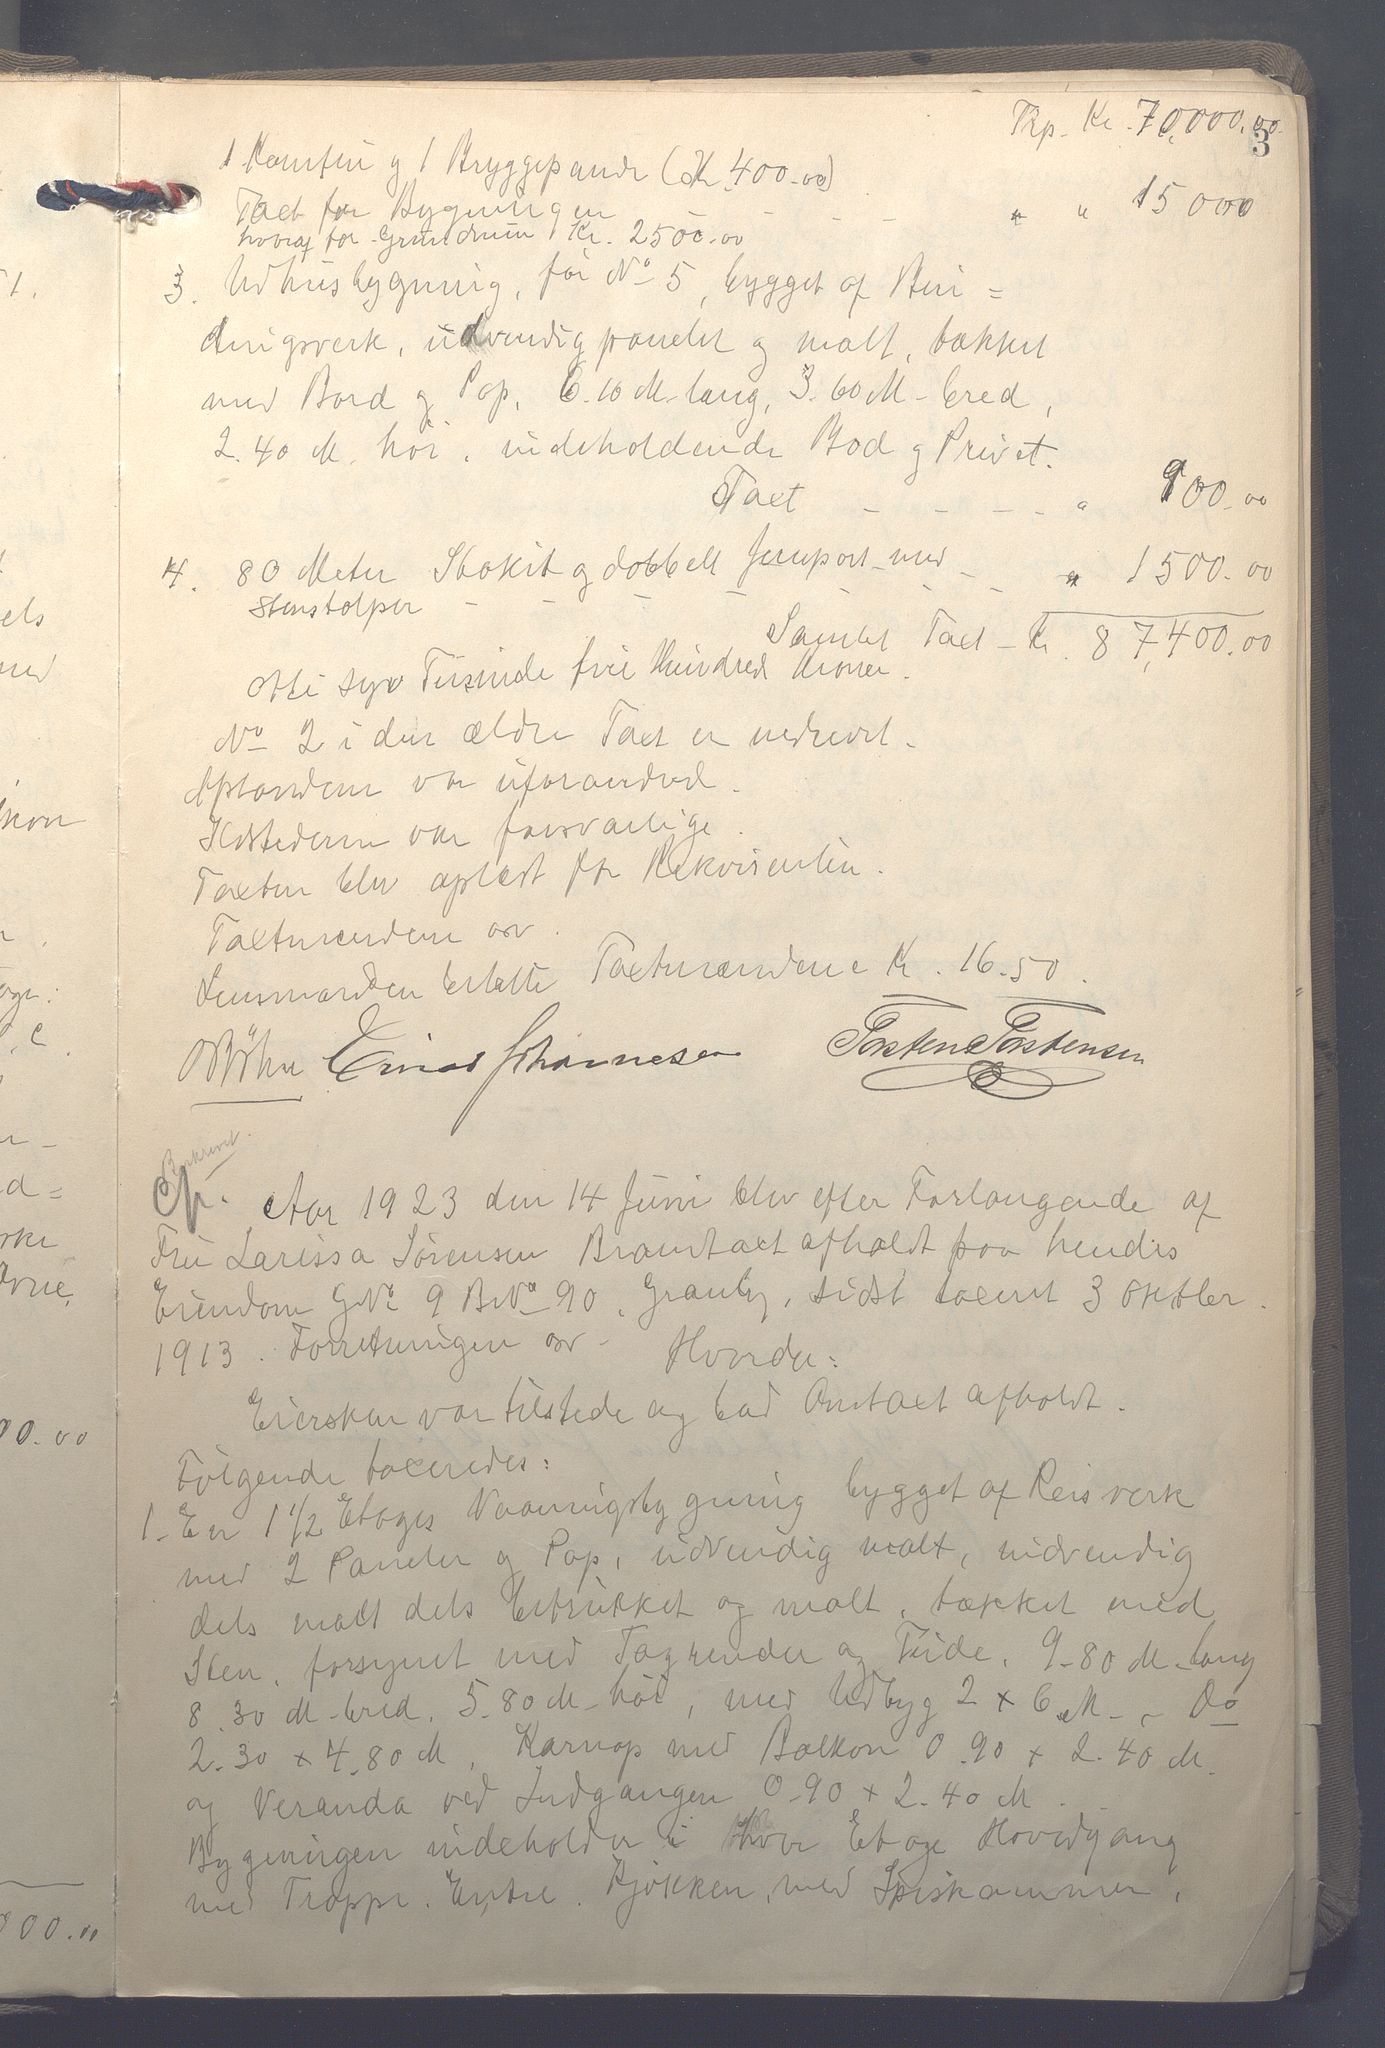 Trp. Kr. 70,000.00
3
1 Komfur og 1 Bryggepande (Kr. 400.00)
Taxt for Bygningen - - - - - " " 15000
hvoraf for Grundmur Kr. 2500.00
3. Udhusbygning, før No 5, bygget af Bin=
dingsverk, udvendig panelet og malt, tækket
med Bord og Pap, 6.10 M. lang, 3.60 M. bred,
2.40 M. høi, indeholdende Bod og Privet.
Taxt - - - - " 900.00
4. 80 Meter Stakit og dobbelt Jernport med - " 1500.00
Stenstolper - - - - - -
Samlet Taxt - Kr. 87,400.00
Otti syv Tusinde fire Hundrede Kroner.
No 2 i den ældre Taxt er nedrevet.
Opstanden var uforandred.
Ildstederne var forsvarlige.
Taxten blev oplæst for Rekvirentin.
Taxtmændene osv.
Lensmanden betalte Taxtmændene Kr. 16.50.
O Bøhn Einar Johannesen Torsten Torstensen
Beskrevet.
Aar 1923 den 14 Juni blev efter Forlangende af
Fru Larissa Sørensen Brandtaxt afholdt paa hendes
Eiendom GNo 9 BNo 90, Granly, sidst taxeret 3 Oktober
1913. Forretningen osv. Hvorda:
Eiersken var tilstede og bad Omtaxt afholdt.
Følgende taxeredes:
1. En 1 1/2 Etages Vaaningsbygning bygget af Reisverk
med 2 Paneler og Pap, udvendig malt, indvendig
dels malt dels betrukket og malt, tækket med
Sten, forsynet med Tagrender og Tude, 9.80 M. lang
8.30 M. bred, 5.80 M. høi, med Udbyg 2 x 6 M. - Do
2.30 x 4.80 M, Karnap med Balkon 0.90 x 2.40 M.
og Veranda ved Indgangen 0.90 x 2.40 M.
Bygningen indeholder i hver Etage Hovedgang
med Trappe, Entre, Kjøkken, med Spiskammer,